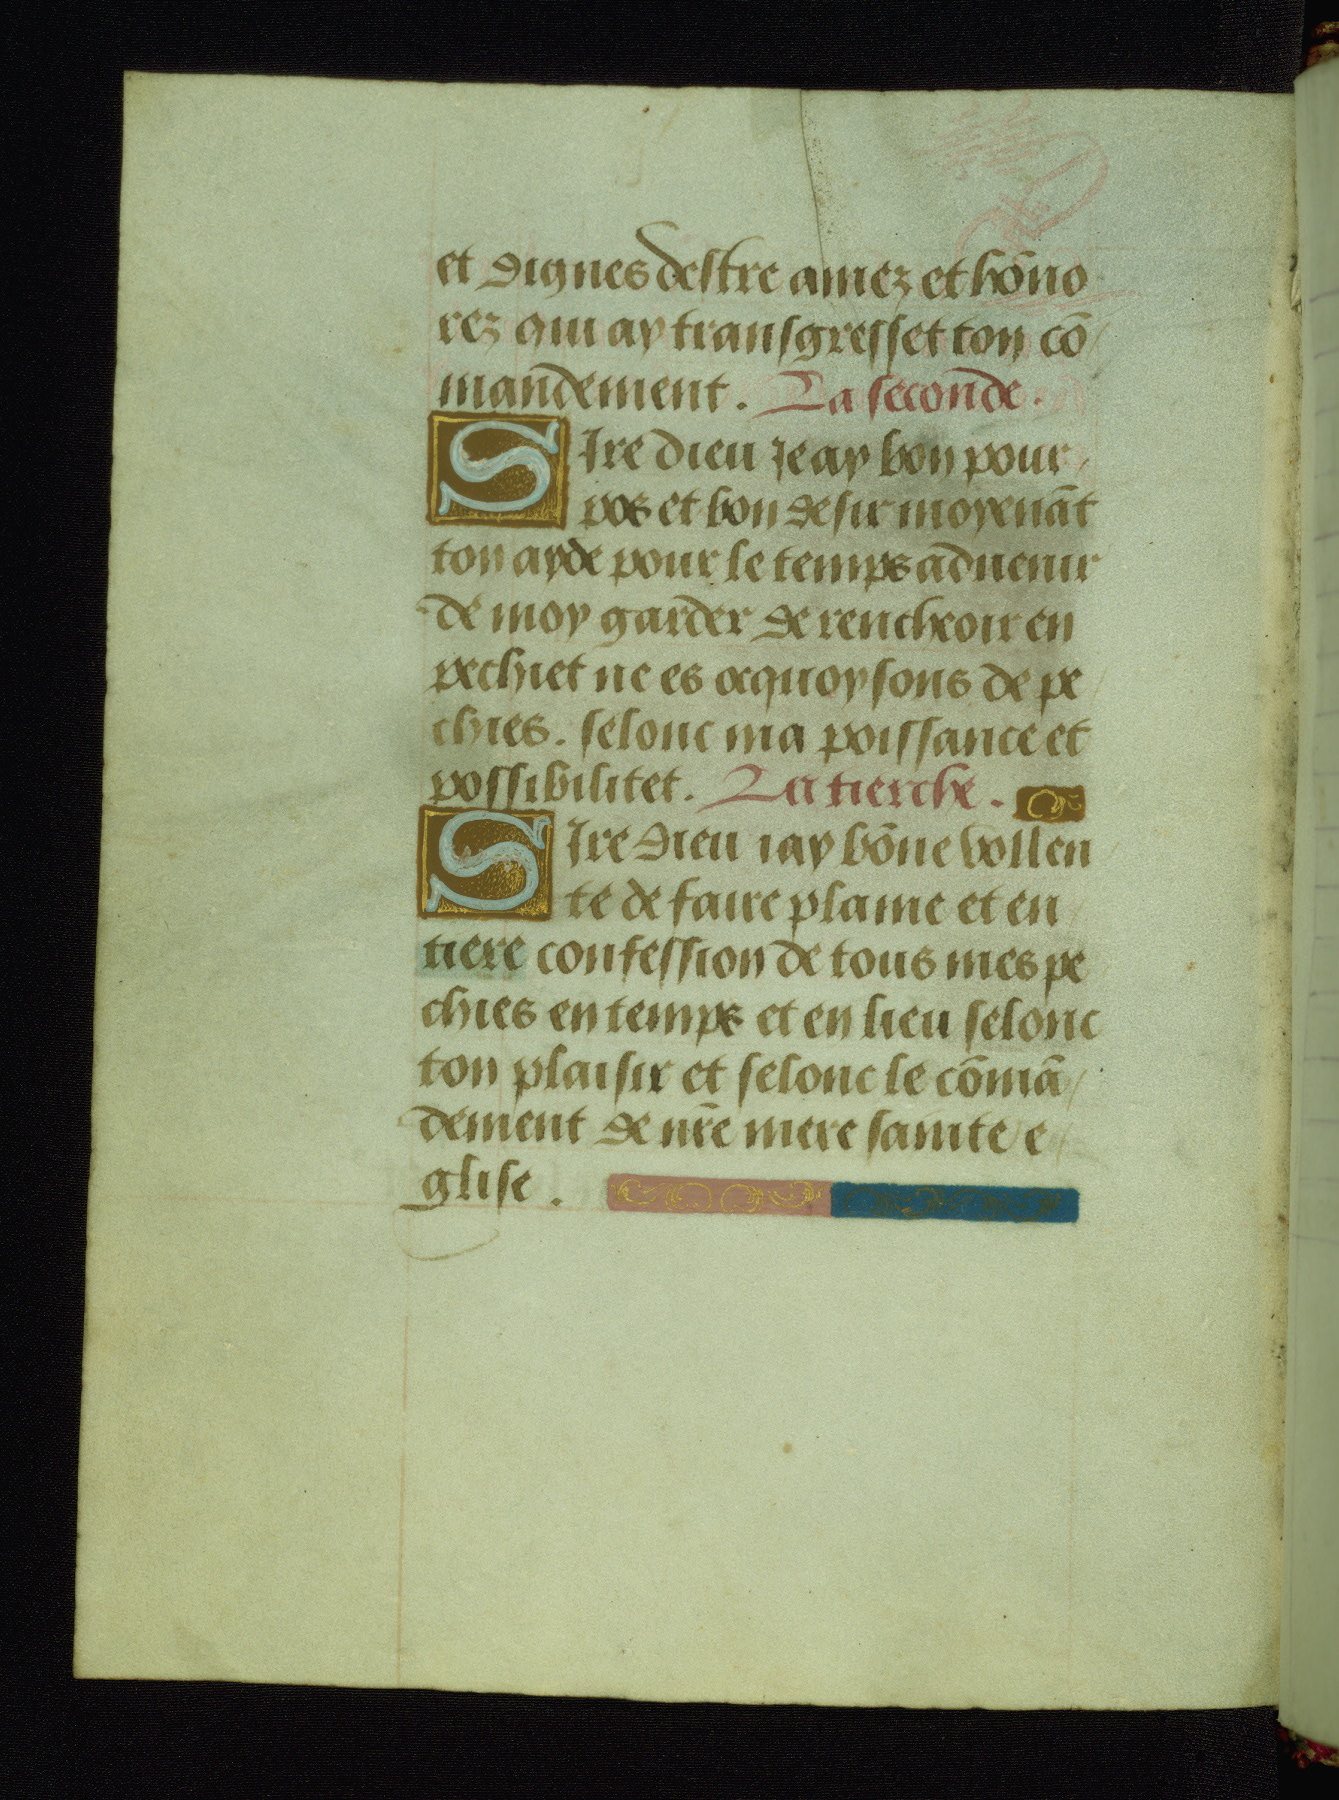 et dignes destre amez et hōno
rez qui ay transgresset ton cō
mandement. La seconde.
Sire dieu ie ay bon pour
pos et bon desir moyenāt
ton ayde pour le temps aduenir
de moy garder de rencheoir en
pechiet ne es ocquoysons de pe
chies. selonc ma poissance et
possibilitet. La tierche.
Sire dieu iay bōne vollen
te de faire plaine et en
tiere confession de tous mes pe
chies en temps et en lieu selonc
ton plaisir et selonc le cōmā
dement de nr̄e mere sainte e
glise.